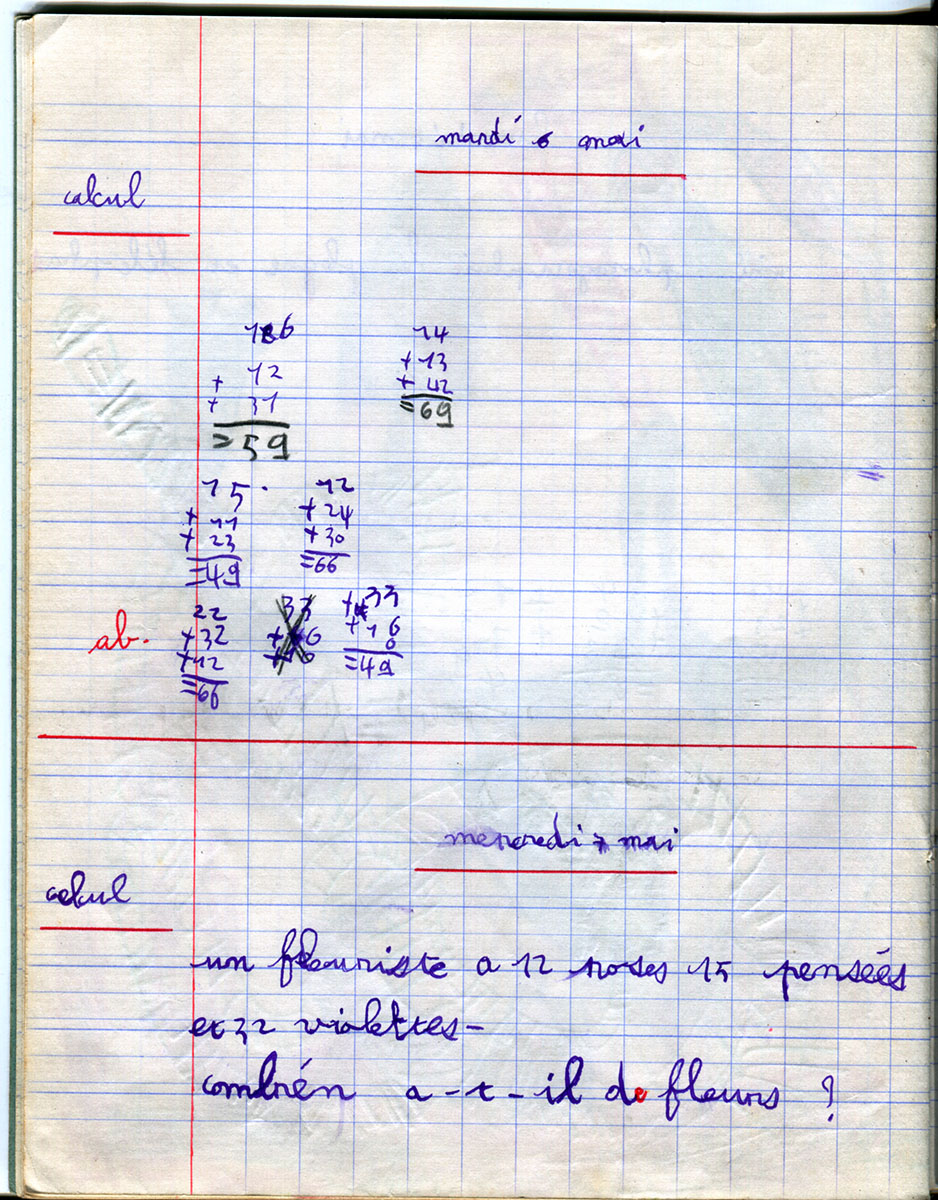 mardi 6 mai
calcul
16 14
+ 12 + 13
+ 31 + 42
= 59 = 69
15 12
+ 11 + 24
+ 23 + 30
= 49 = 66
22 33 + 33
ab. + 32 + 16 + 16
+ 12 0
= 66 = 49
mercredi 7 mai
calcul
un fleuriste a 12 roses 15 pensées
et 32 violettes-
combién a-t-il de fleurs ?